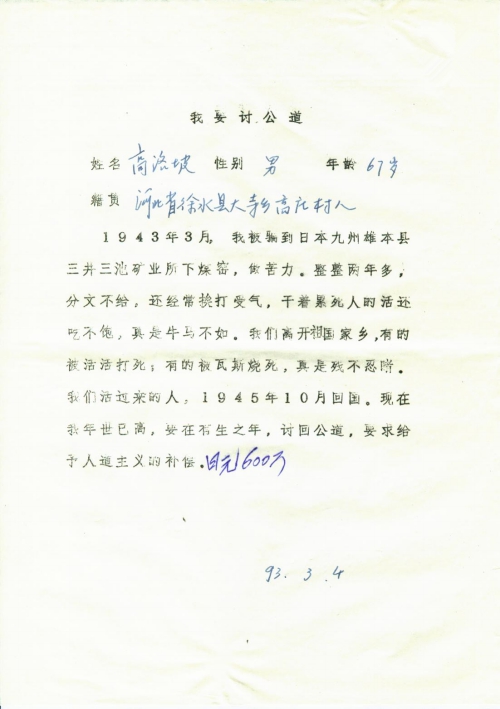 我要讨公道
姓名 高洛坡 性别 男 年龄 67岁
籍贯 河北省徐水县大寺乡高庄村人
1943年3月，我被骗到日本九州雄本县
三井三池矿业所下煤窑，做苦力。整整两年多，
分文不给，还经常挨打受气，干着累死人的活还
吃不饱，真是牛马不如。我们离开祖国家乡，有的
被活活打死；有的被瓦斯烧死，真是残不忍睹。
我们活过来的人，1945年10月回国。现在
我年世已高，要在有生之年，讨回公道，要求给
予人道主义的补偿。日元1600万
93.3.4